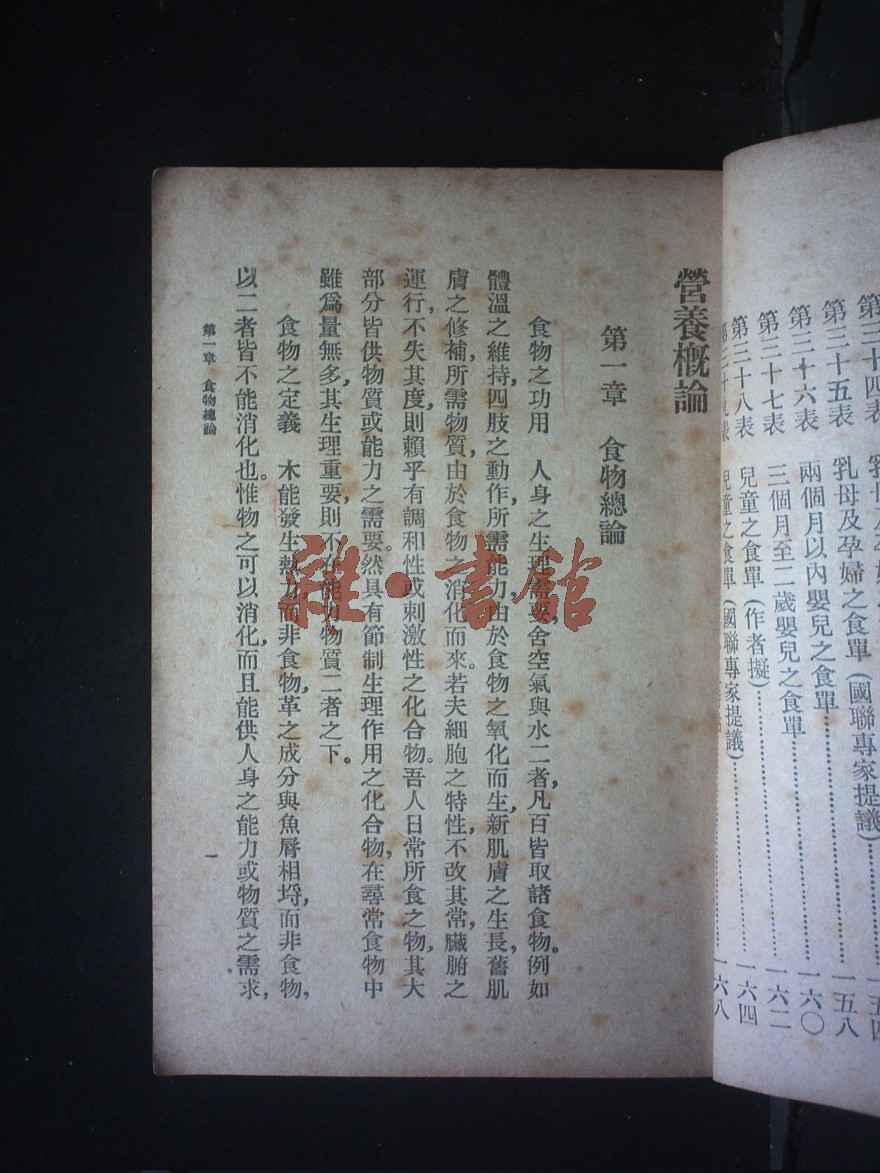 第三十四表
第三十五表 乳母及孕婦之食單(國聯專家提議)……一五八
第三十六表 兩個月以內嬰兒之食單……一六〇
第三十七表 三個月至二歲嬰兒之食單……一六二
第三十八表 兒童之食單(作者擬)……一六四
第三十九表 兒童之食單(國聯專家提議)……一六八
營養概論
第一章 食物總論
食物之功用 人身之生理需要,舍空氣與水二者,凡百皆取諸食物。例如
體溫之維持,四肢之動作,所需能力,由於食物之氧化而生,新肌膚之生長,舊肌
膚之修補,所需物質,由於食物之消化而來。若夫細胞之特性,不改其常,臟腑之
運行,不失其度,則賴乎有調和性或刺激性之化合物。吾人日常所食之物,其大
部分皆供物質或能力之需要。然具有節制生理作用之化合物,在尋常食物中
雖爲量無多,其生理重要,則不在能力物質二者之下。
食物之定義 木能發生熱力,而非食物,革之成分與魚脣相埒,而非食物,
以二者皆不能消化也。惟物之可以消化而且能供人身之能力或物質之需求,
第一章 食物總論
一
雜·書館